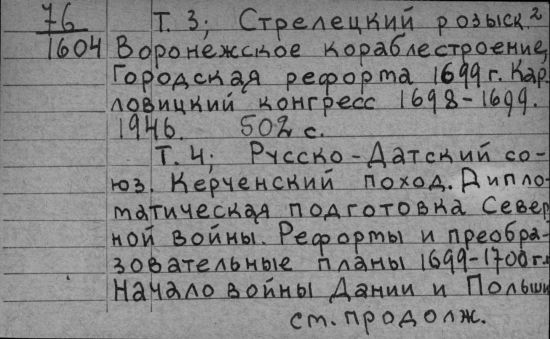 76
1604
Т. 3; Стрелецкий розыск.²
Воронежское кораблестроение,
Городская реформа 1699 г. Кар-
ловицкий конгресс 1698-1699.
1946. 502 с.
Т. 4; Русско-Датский со-
юз. Керченский поход. Дипло-
матическая подготовка Север-
ной войны. Реформы и преобра-
зовательные планы 1699-1700 г.г.
Начало войны Дании и Польши
см. продолж.